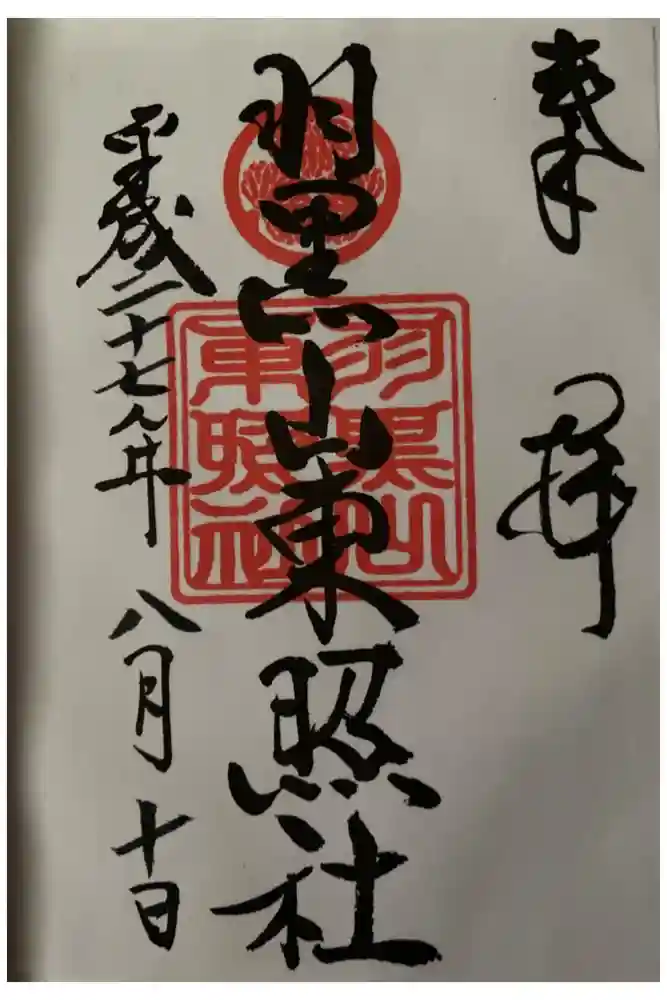 奉拝
羽黒山東照社
羽黒山
東照社
平成二十七年
八月十日